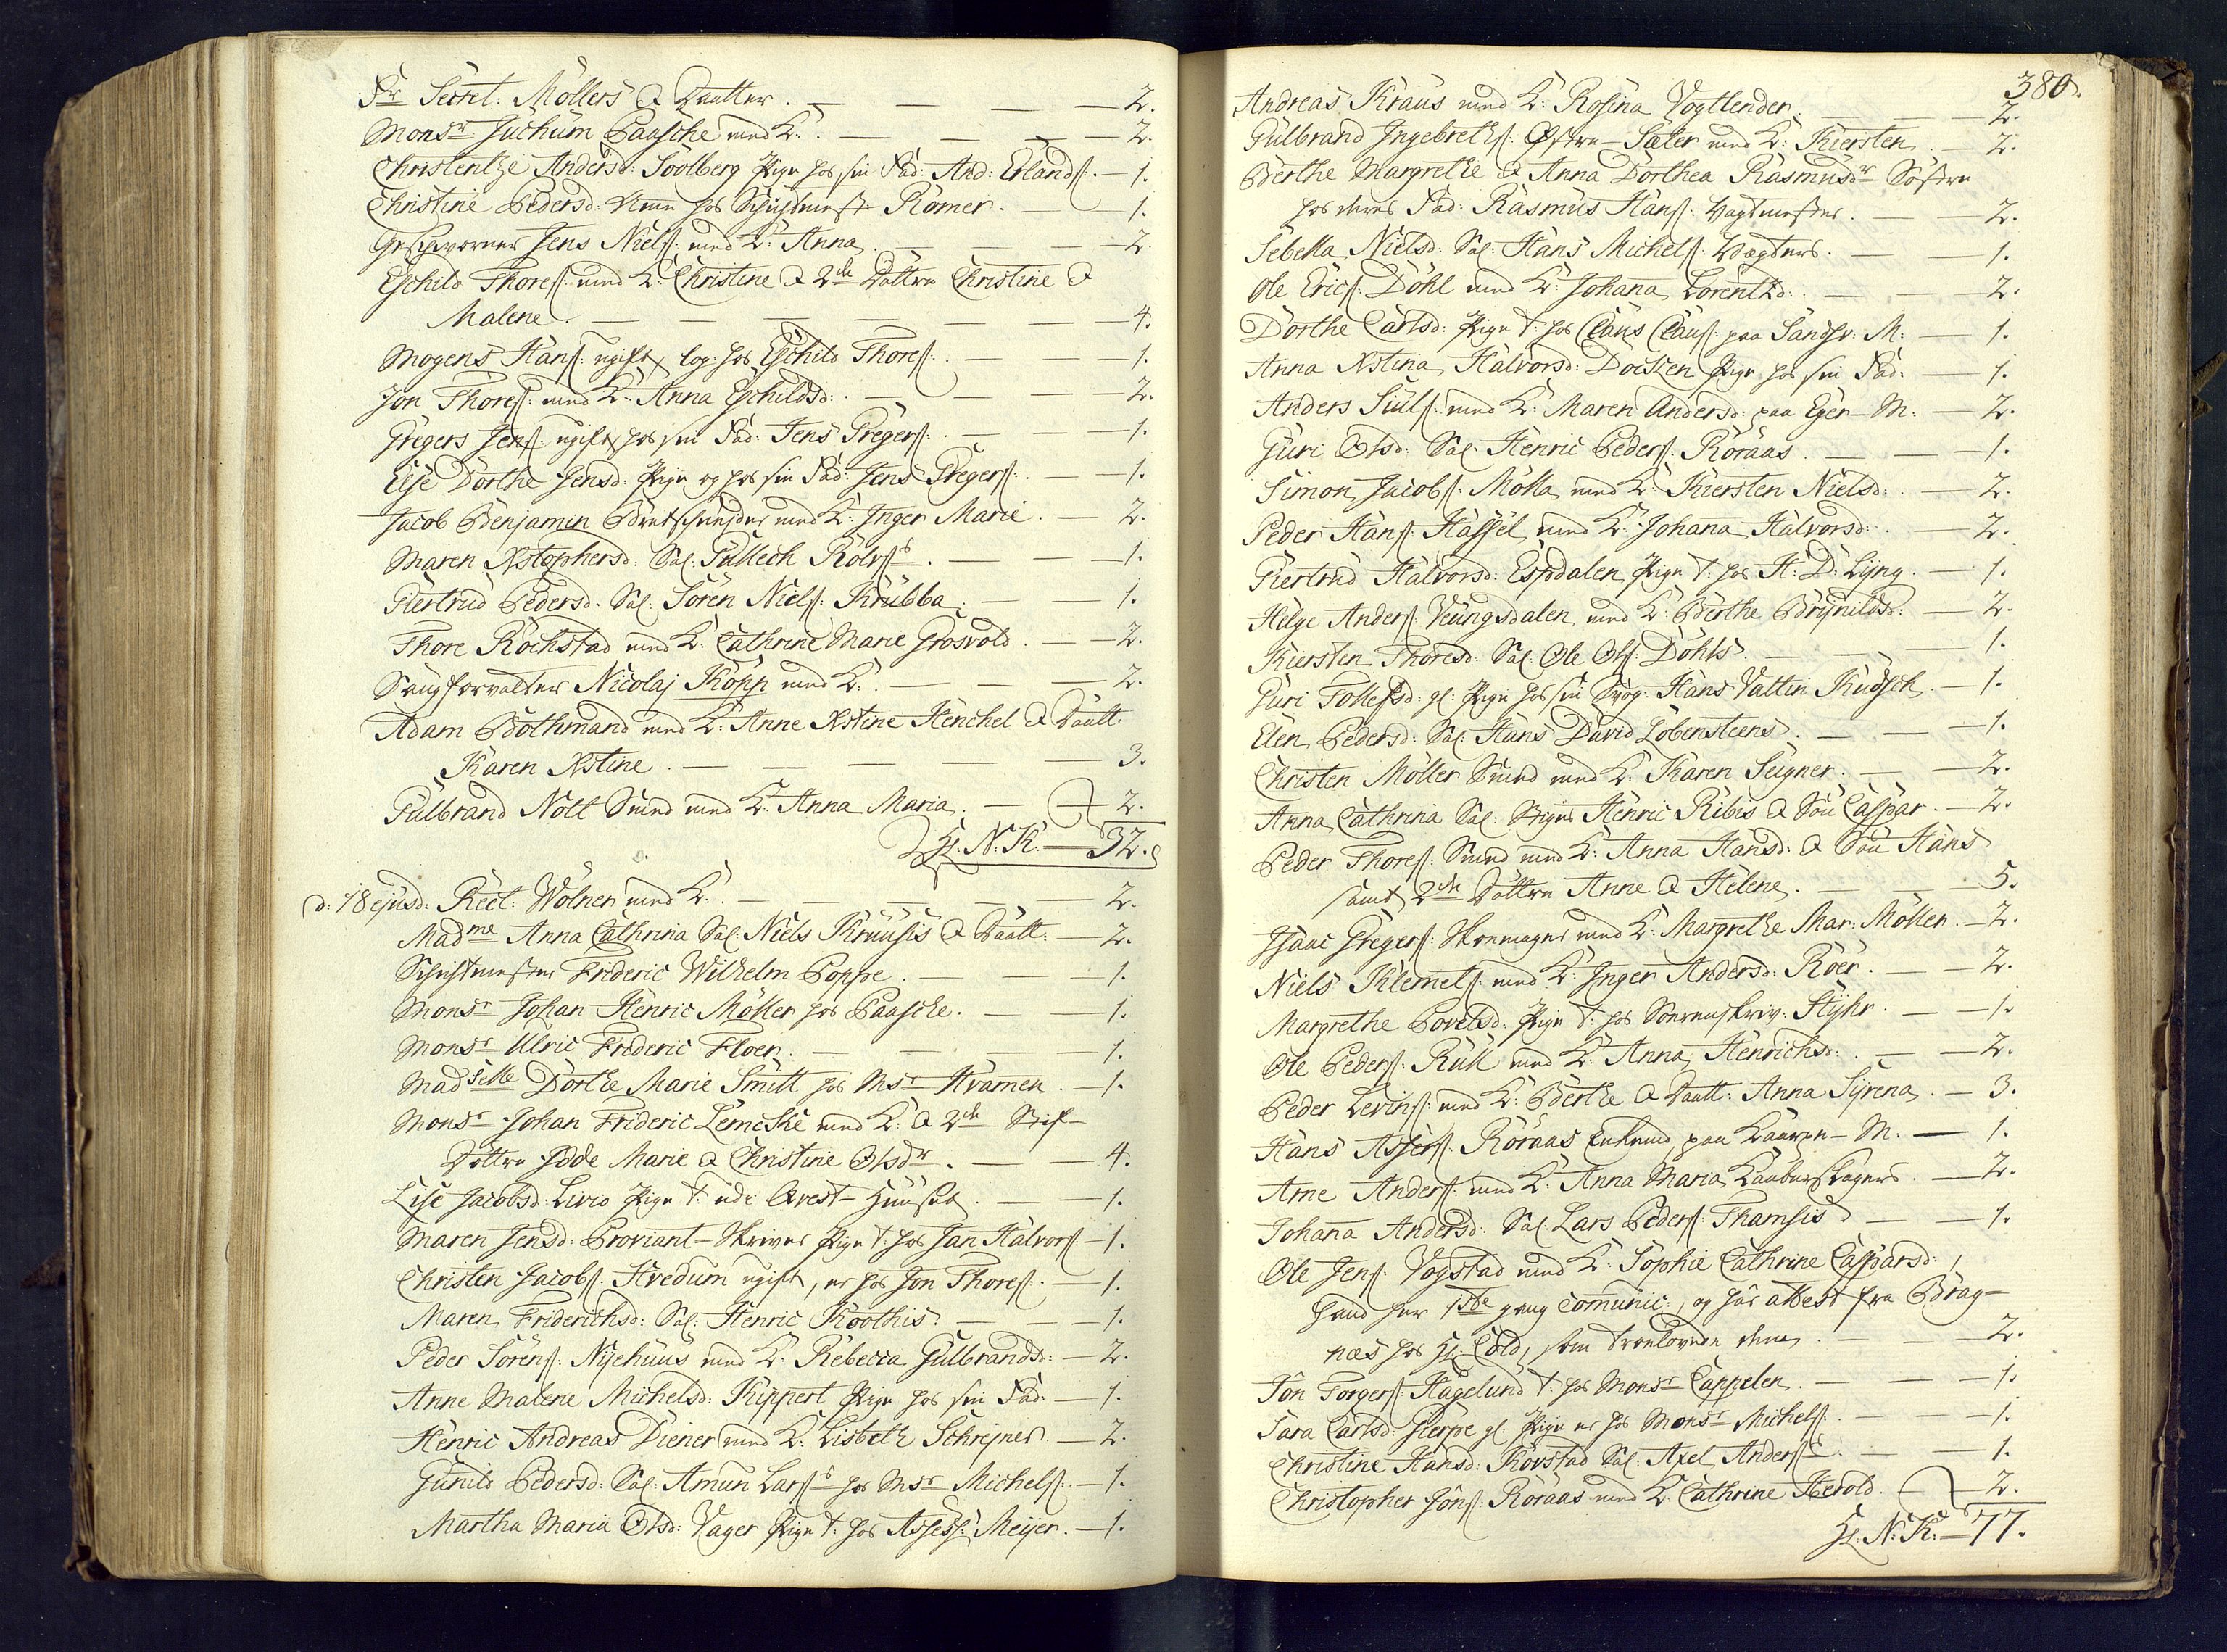 Fr Secret: Möllers & Daatter. — 2.
Monsr Juchum Paasche med K: — 2.
Christentze Andersd: Soolberg Pige hos sin Fad: And: Erlands: — 1.
Christine Pedersd: hos Schichtmestr Römer. — 1.
Geschworner Jens Niels: med K: Anna. — 2.
Eschild Thores: med K: Christine & 2de Döttre Christine &
Malene. — 4.
Mogens Hans: ugift, log: hos Eschild Thores: — 1.
Jon Thores: med K: Anna Eschildsd: — 2.
Gregers Jens: ugift hos sin Fad: Jens Gregers: — 1.
Else Dorthe Jensd: Pige og hos sin Fad: Jens Gregers: — 1.
Jacob Benjamin Bretschneider med K: Inger Marie. — 2.
Maren Xstophersd: Sal: Gullech Rolvss. — 1.
Giertrud Pedersd: Sal: Sören Niels: Krubba. — 1.
Thore Rochstad med K: Cathrine Marie Grosvold. — 2.
Saugforvalter Nicolaj Kopp med K: — 2.
Adam Bothmand med K: Anne Xstine Henchel & Daatt:
Karen Xstine. — 3.
Gulbrand Nott Smed med K: Anna Maria. — 2.
H: N: K: — 32.
d: 18 ejusd: Rect: Wolner med K: — 2.
Madme Anna Cathrina Sal: Niels Kruusis & Daatt: — 2.
Schichtmester Frideric Wilhelm Poppe. — 1.
Monsr Johan Henric Möller hos Paasche. — 1.
Monsr Ulric Frideric Floer. — 1.
Madselle Dorthe Marie Smitt hos Msr Kramer. — 1.
Monsr Johan Frideric Lemcke med K: & 2de Stif-
Döttre Idde Marie & Christine Olsdr. — 4.
Lise Jacobsd: Livio Pige t: udi Arest-Huuset. — 1.
Maren Jensd: Proviant-Skriver Pige t: hos Jan Halvors: — 1.
Christen Jacobs: Hvedum ugift, er hos Jon Thores: — 1.
Maren Friderichsd: Sal: Henric Koothis. — 1.
Peder Sörens: Nyehuus med K: Rebecca Gulbrandsd: — 2.
Anne Malene Michelsd: Kippert Pige hos sin Fad: — 1.
Henric Andreas Diener med K: Lisbeth Schrejner. — 2.
Gunild Pedersd: Sal: Amun Larss hos Msr Michels: — 1.
Martha Maria Olsd: Vager Pige t: hos Assess: Meijer. — 1.
380.
Andreas Kraus med K: Rosina Vogtlender. — 2.
Gulbrand Ingebreths: Östre-Sæter med K: Kiersten. — 2.
Berthe Margrethe & Anna Dorthea Rasmusdr Söstre
hos deres Fad: Rasmus Hans: Vagtmester. — 2.
Sebella Nielsd: Sal: Hans Michels: Vægters. — 1.
Ole Erics: Dohl med K: Johana Lorentzd: — 2.
Dorthe Carlsd: Pige t: hos Claus Claus: paa Sandsv: M: — 1.
Anna Xstina Halvorsd: Docken Pige hos sin Fad: — 1.
Anders Siuls: med K: Maren Andersd: paa Eger-M: — 2.
Guri Olsd: Sal: Henric Peders: Röraas. — 1.
Simon Jacobs: Molla med K: Kiersten Nielsd: — 2.
Peder Hans: Hassel med K: Johana Halvorsd: — 2.
Giertrud Halvorsd: Espdalen Pige t: hos H: D: Lyng. — 1.
Helge Anders: Veungsdalen med K: Berthe Brynildsd: — 2.
Kiersten Thoresd: Sal: Ole Ols: Dohls. — 1.
Guri Tollefsd: gl: Pige hos sin Svog: Hans Vattin Kudsch. — 1.
Elen Pedersd: Sal: Hans David Lobensteens. — 1.
Christen Möller Smed med K: Karen Seigner. — 2.
Anna Cathrina Sal: Henric Ribis & Sön Caspar. — 2.
Peder Thores: Smed med K: Anna Hansd: & Sön Hans
samt 2de Döttre Anne & Helene. — 5.
Isaac Gregers: Skoemager med K: Margrethe Mar: Möller. — 2.
Niels Klemets: med K: Inger Andersd: Röer. — 2.
Margrethe Povelsd: Pige t: hos Sorenskriv: Styhr. — 1.
Ole Peders: Rull med K: Anna Henrichsd: — 2.
Peder Levins: med K: Berthe & Daatt: Anna Syrena. — 3.
Hans Assers: Röraas Enkemd paa Laaven-M. — 1.
Arne Anders: med K: Anna Maria Laaberslagers. — 2.
Johana Andersd: Sal: Lars Peders: Thamsis — 1.
Ole Jens: Vogstad med K: Sophie Cathrine Caspersd:,
hand her 1ste gang comunic:, og har attest fra Brag-
næs hos H: Cold, som troelovede dem. — 2.
Jon Torgers: Hagelund t: hos Monsr Cappelen. — 1.
Sara Carlsd: Gierpe gl: Pige er hos Monsr Michels: — 1.
Christine Hansd: Korstad Sal: Axel Anderss. — 1.
Christopher Jons: Röraas med K: Cathrine Herold. — 2.
H: N: K: — 77.